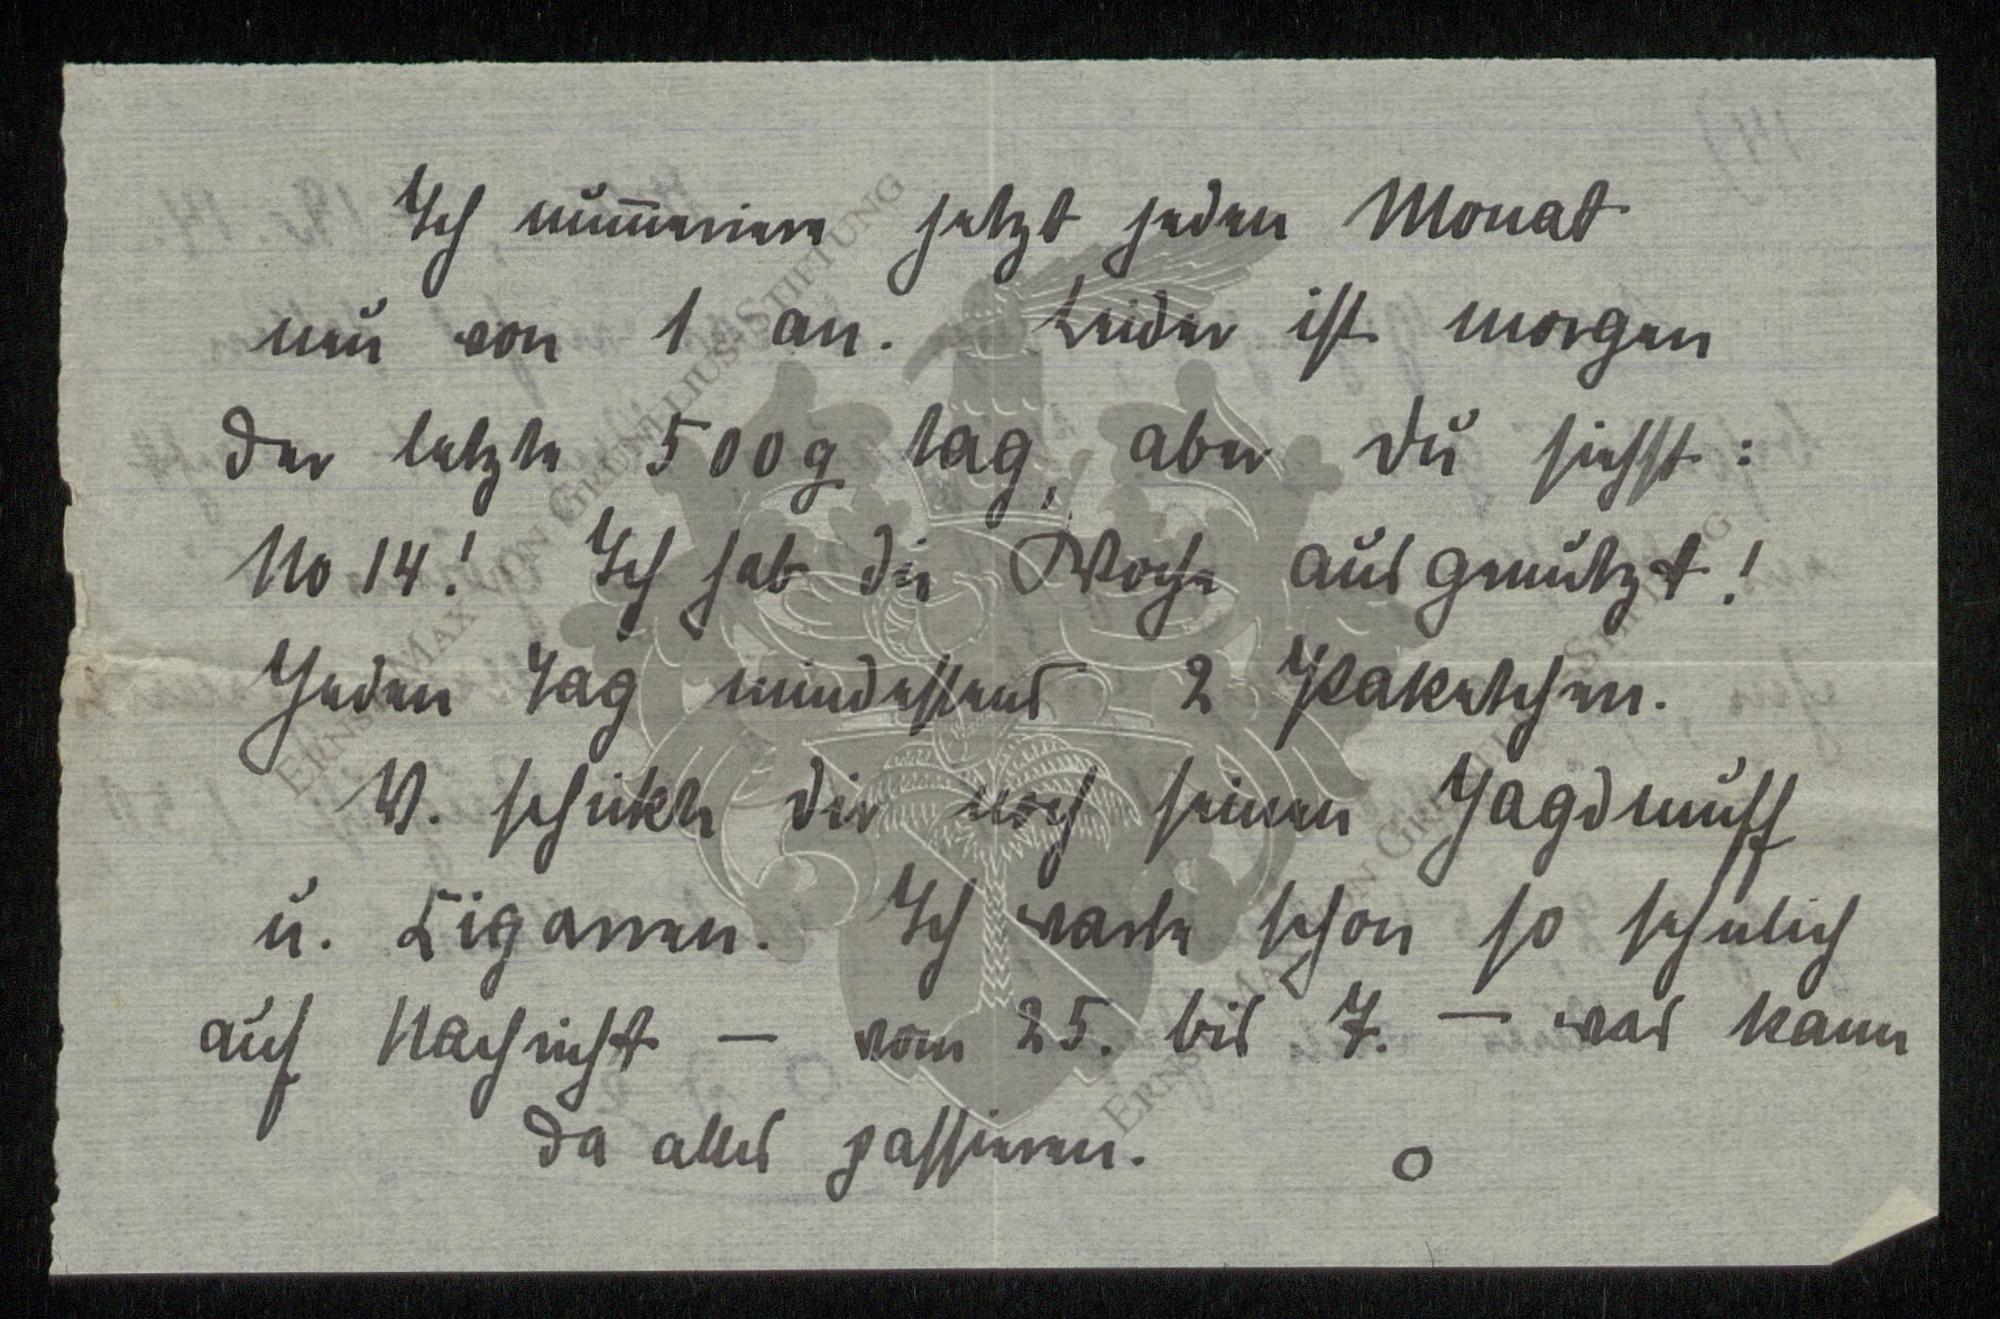 Ich nummeriere jetzt jeden Monat
neu von 1 an. Leider ist morgen
der letzte 500 g tag, aber du siehst:
No 14! Ich hab die Woche ausgenützt!
Jeden Tag mindestens 2 Paketchen.
V. schickte dir noch seinen Jagdmuff
u. Zigarren. Ich warte schon so sehnlich
auf Nachricht — vom 25. bis 7. — was kann
da alles passieren. o
ERNST MAX VON GRUNELIUS-STIFTUNG
ERNST MAX VON GRUNELIUS-STIFTUNG